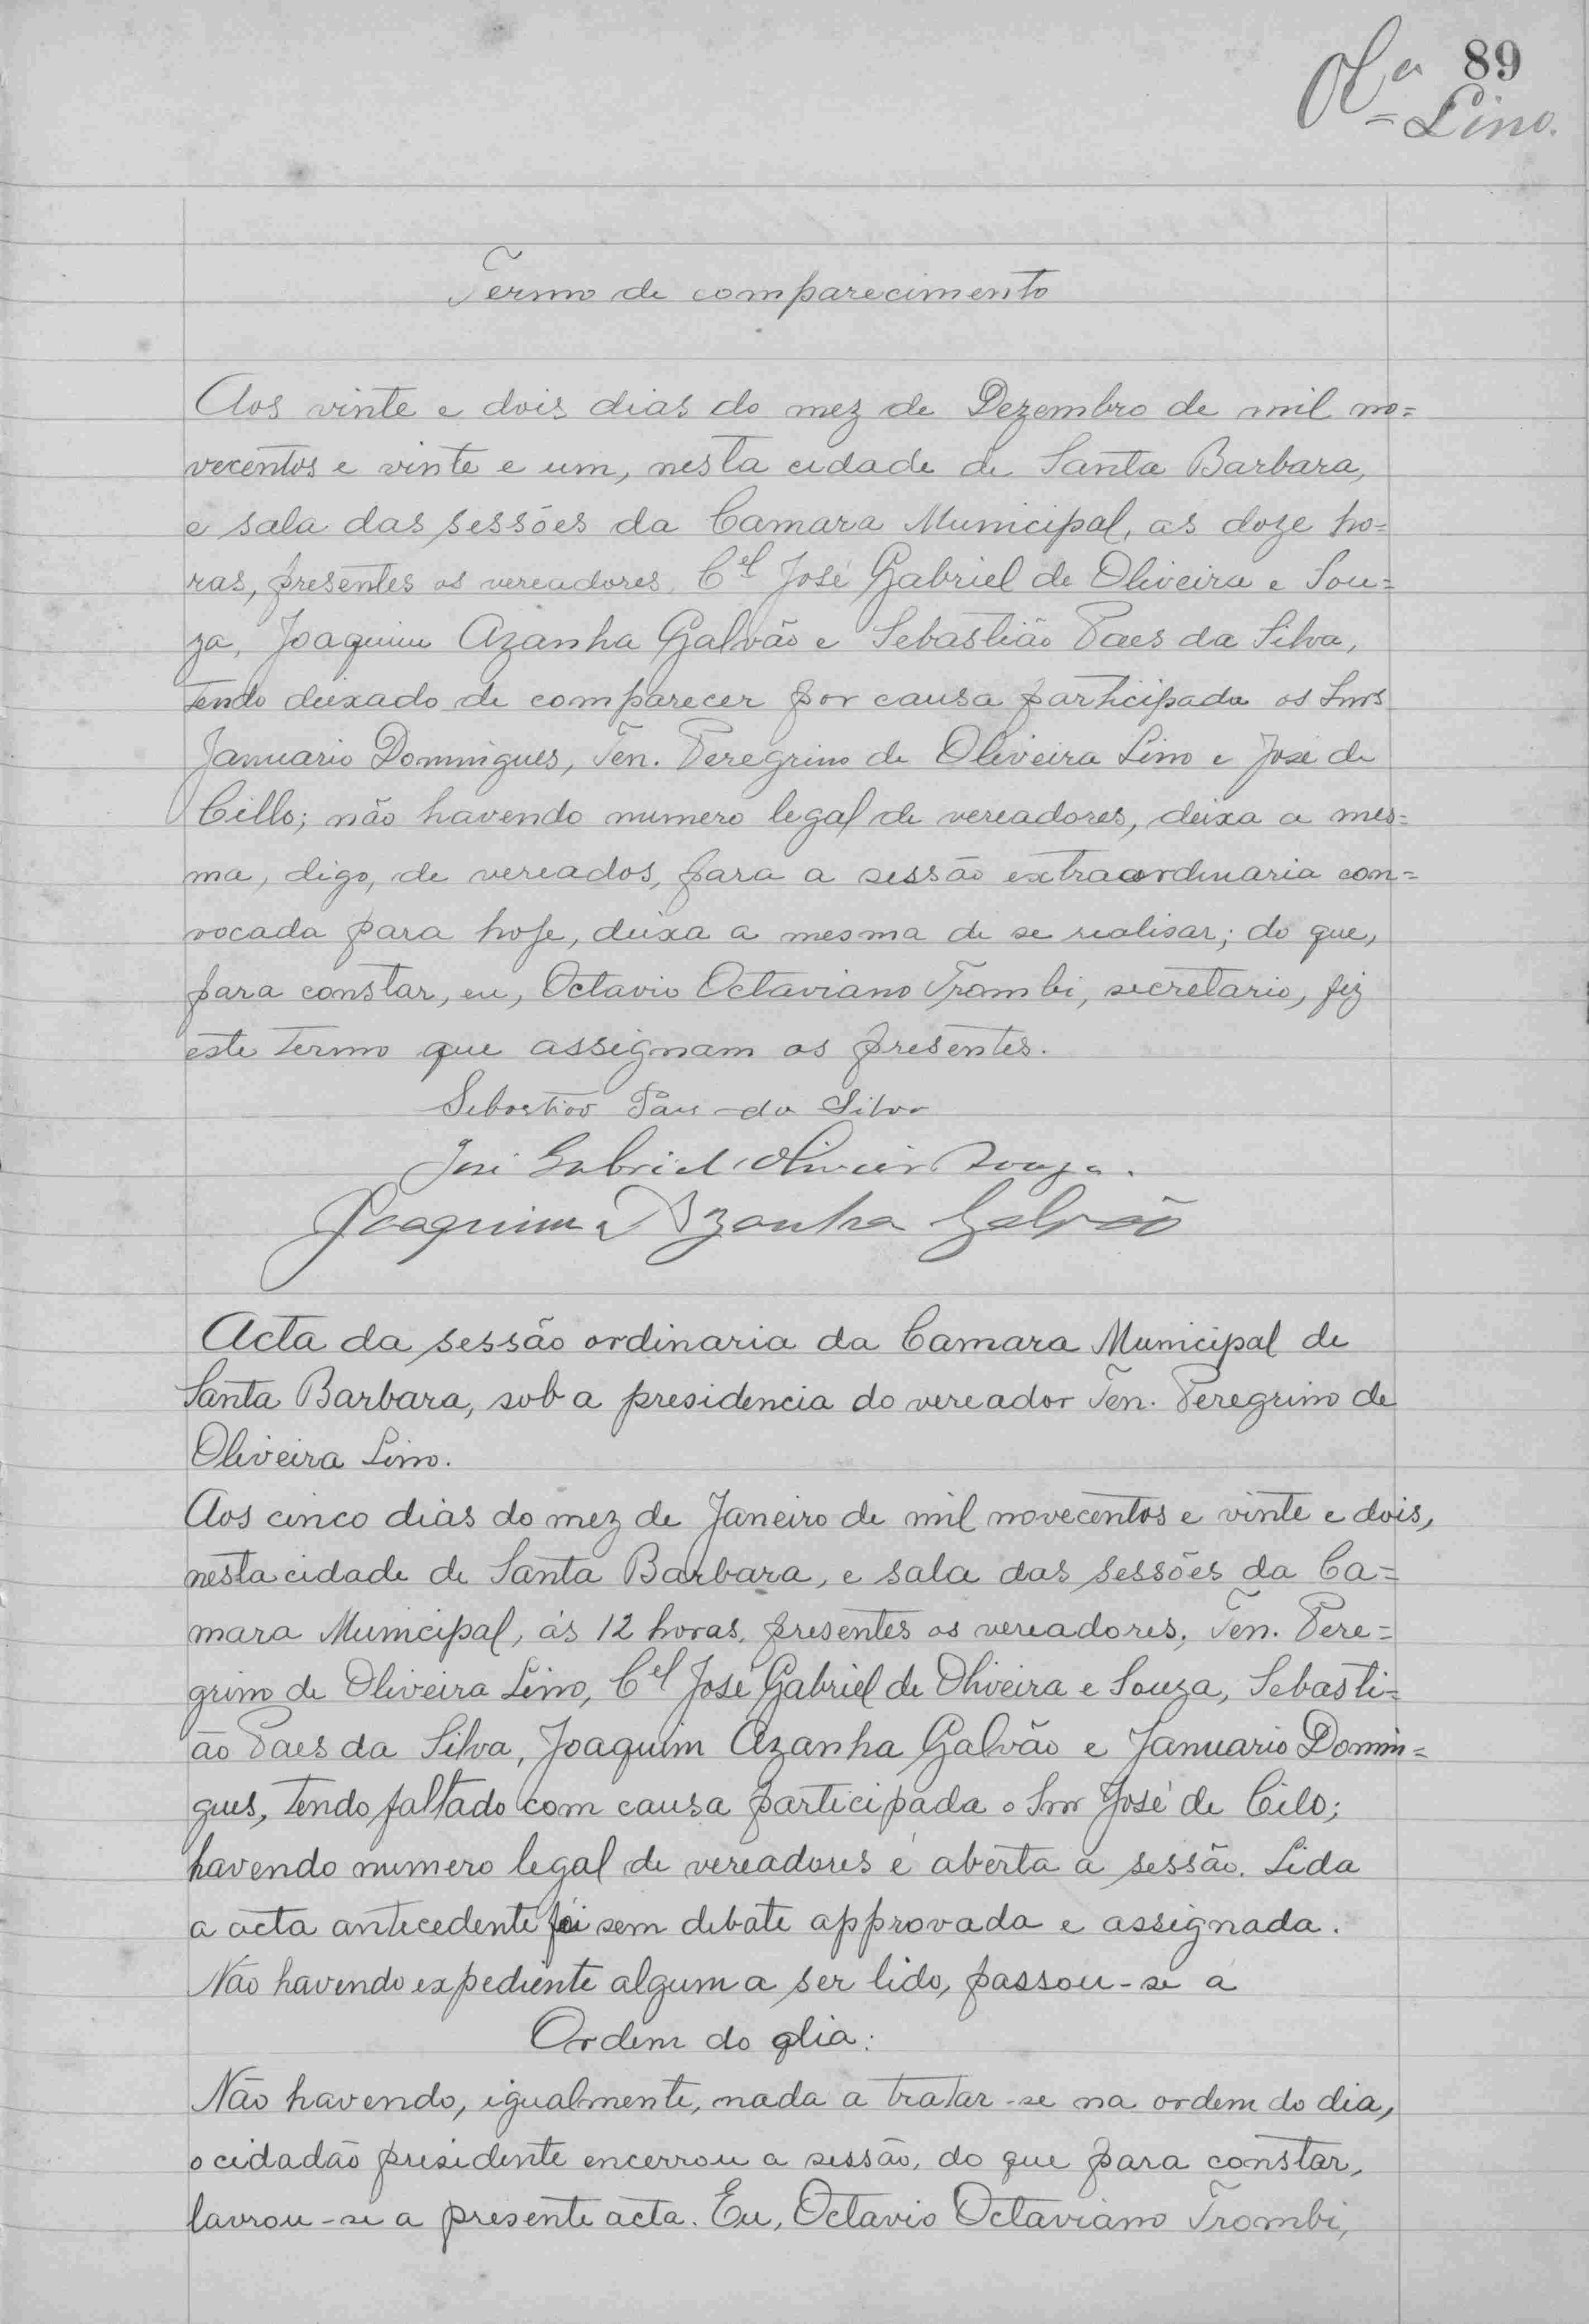 89
Olª
= Lino.
Termo de comparecimento
Aos vinte e dois dias do mez de Dezembro de mil no=
vecentos e vinte e um, nesta cidade de Santa Barbara,
e sala das sessões da Camara Municipal, as doze ho=
ras, presentes os vereadores, Cel José Gabriel de Oliveira e Sou=
za, Joaquim Azanha Galvão e Sebastião Paes da Silva,
tendo deixado de comparecer por causa participada os Snrs
Januario Domingues, Ten. Peregrino de Oliveira Lino e José de
Cillo; não havendo numero legal de vereadores, deixa a mes=
ma, digo, de vereados, para a sessão extraordinaria con=
vocada para hoje, deixa a mesma de se realisar; do que,
para constar, eu, Octavio Octaviano Trombi, secretario, fiz
este termo que assignam os presentes.
Sebastião Paes da Silva
José Gabriel Oliveira Souza.
Joaquim Azanha Galvão
Acta da sessão ordinaria da Camara Municipal de
Santa Barbara, sob a presidencia do vereador Ten. Peregrino de
Oliveira Lino.
Aos cinco dias do mez de Janeiro de mil novecentos e vinte e dois,
nesta cidade de Santa Barbara, e sala das sessões da Ca=
mara Municipal, ás 12 horas, presentes os vereadores, Ten. Pere=
grino de Oliveira Lino, Cel José Gabriel de Oliveira e Souza, Sebasti=
ão Paes da Silva, Joaquim Azanha Galvão e Januario Domin=
gues, tendo faltado com causa participada o Snr José de Cilo;
havendo numero legal de vereadores é aberta a sessão. Lida
a acta antecedente foi sem debate approvada e assignada.
Não havendo expediente algum a ser lido, passou-se á
Ordem do dia:
Não havendo, igualmente, nada a tratar-se na ordem do dia,
o cidadão presidente encerrou a sessão, do que para constar,
lavrou-se a presente acta. Eu, Octavio Octaviano Trombi,